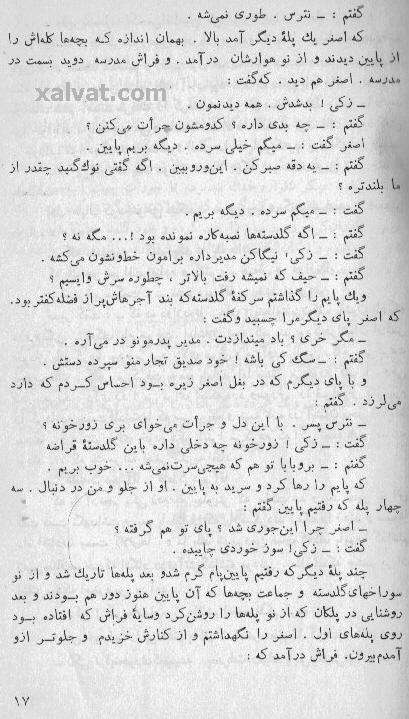 گفتم : ــ نترس . طوری نمی‌شه .
که اصغر یك پلهٔ دیگر آمد بالا . بهمان اندازه که بچه‌ها کله‌اش را
از پایین دیدند و از نو هوارشان درآمد . و فراش مدرسه دوید بسمت در
مدرسه . اصغر هم دید . که‌گفت :
xalvat.com
ــ زکی ! بدشدش . همه دیدنمون .
گفتم : ــ چه بدی داره ؟ کدومشون جرأت می‌کنن ؟
اصغر گفت : ــ میگم خیلی سرده . دیگه بریم پایین .
گفتم : ــ یه دقه صبرکن . این‌وروببین . اگه گفتی نوك‌گنبد چقدر از
ما بلندتره ؟
گفت : ــ میگم سرده . دیگه بریم .
گفتم : ــ اگه گلدسته‌ها نصبه‌کاره نمونده بود !... مگه نه ؟
گفت : ــ زکی ! نیگاکن مدیرداره برامون خطونشون می‌کشه .
گفتم : ــ حیف که نمیشه رفت بالاتر ، چطوره سرش وایسیم ؟
ویك پایم را گذاشتم سرکفهٔ گلدسته‌که بند آجرهاش‌پراز فضله‌کفتر بود.
که اصغر پای دیگرمرا چسبید وگفت :
ــ مگر خری ؟ باد میندازدت . مدیر پدرمونو در می‌آره .
گفتم : ــ سگ کی باشه ! خود صدیق تجار منو سپرده دستش .
و با پای دیگرم که در بغل اصغر زیره بـود احساس کـردم که دارد
می‌لرزد . گفتم :
ــ نترس پسر . با این دل و جرأت می‌خوای بری زورخونه ؟
گفت : ــ زکی ! زورخونه چه دخلی داره باین گلدستهٔ قراضه
گفتم : ــ بروبابا تو هم که هیچی‌سرت‌نمی‌شه ... خوب بریم .
که پایم را رها کرد و سرید به پایین . او از جلو و من در دنبال . سه
چهار پله که رفتیم پایین گفتم :
ــ اصغر چرا این‌جوری شد ؟ پای تو هم گرفته ؟
گفت : ــ زکی! سوز خوردی چاییده .
چند پلهٔ دیگر که رفتیم پایین‌پام گرم شدو بعد پله‌ها تاریك شد و از نو
سوراخهای‌گلدسته و جماعت بچه‌ها که آن پایین هنوز دور هم بـودند و بعد
روشنایی در پلکان که از نو پله‌ها را روشن‌کرد وسایهٔ فراش که افتاده بـود
روی پله‌های اول . اصغر را نگهداشتم و از کنارش خزیدم و جلوتـر ازو
آمدم‌بیرون. فراش درآمد که :
۱۷